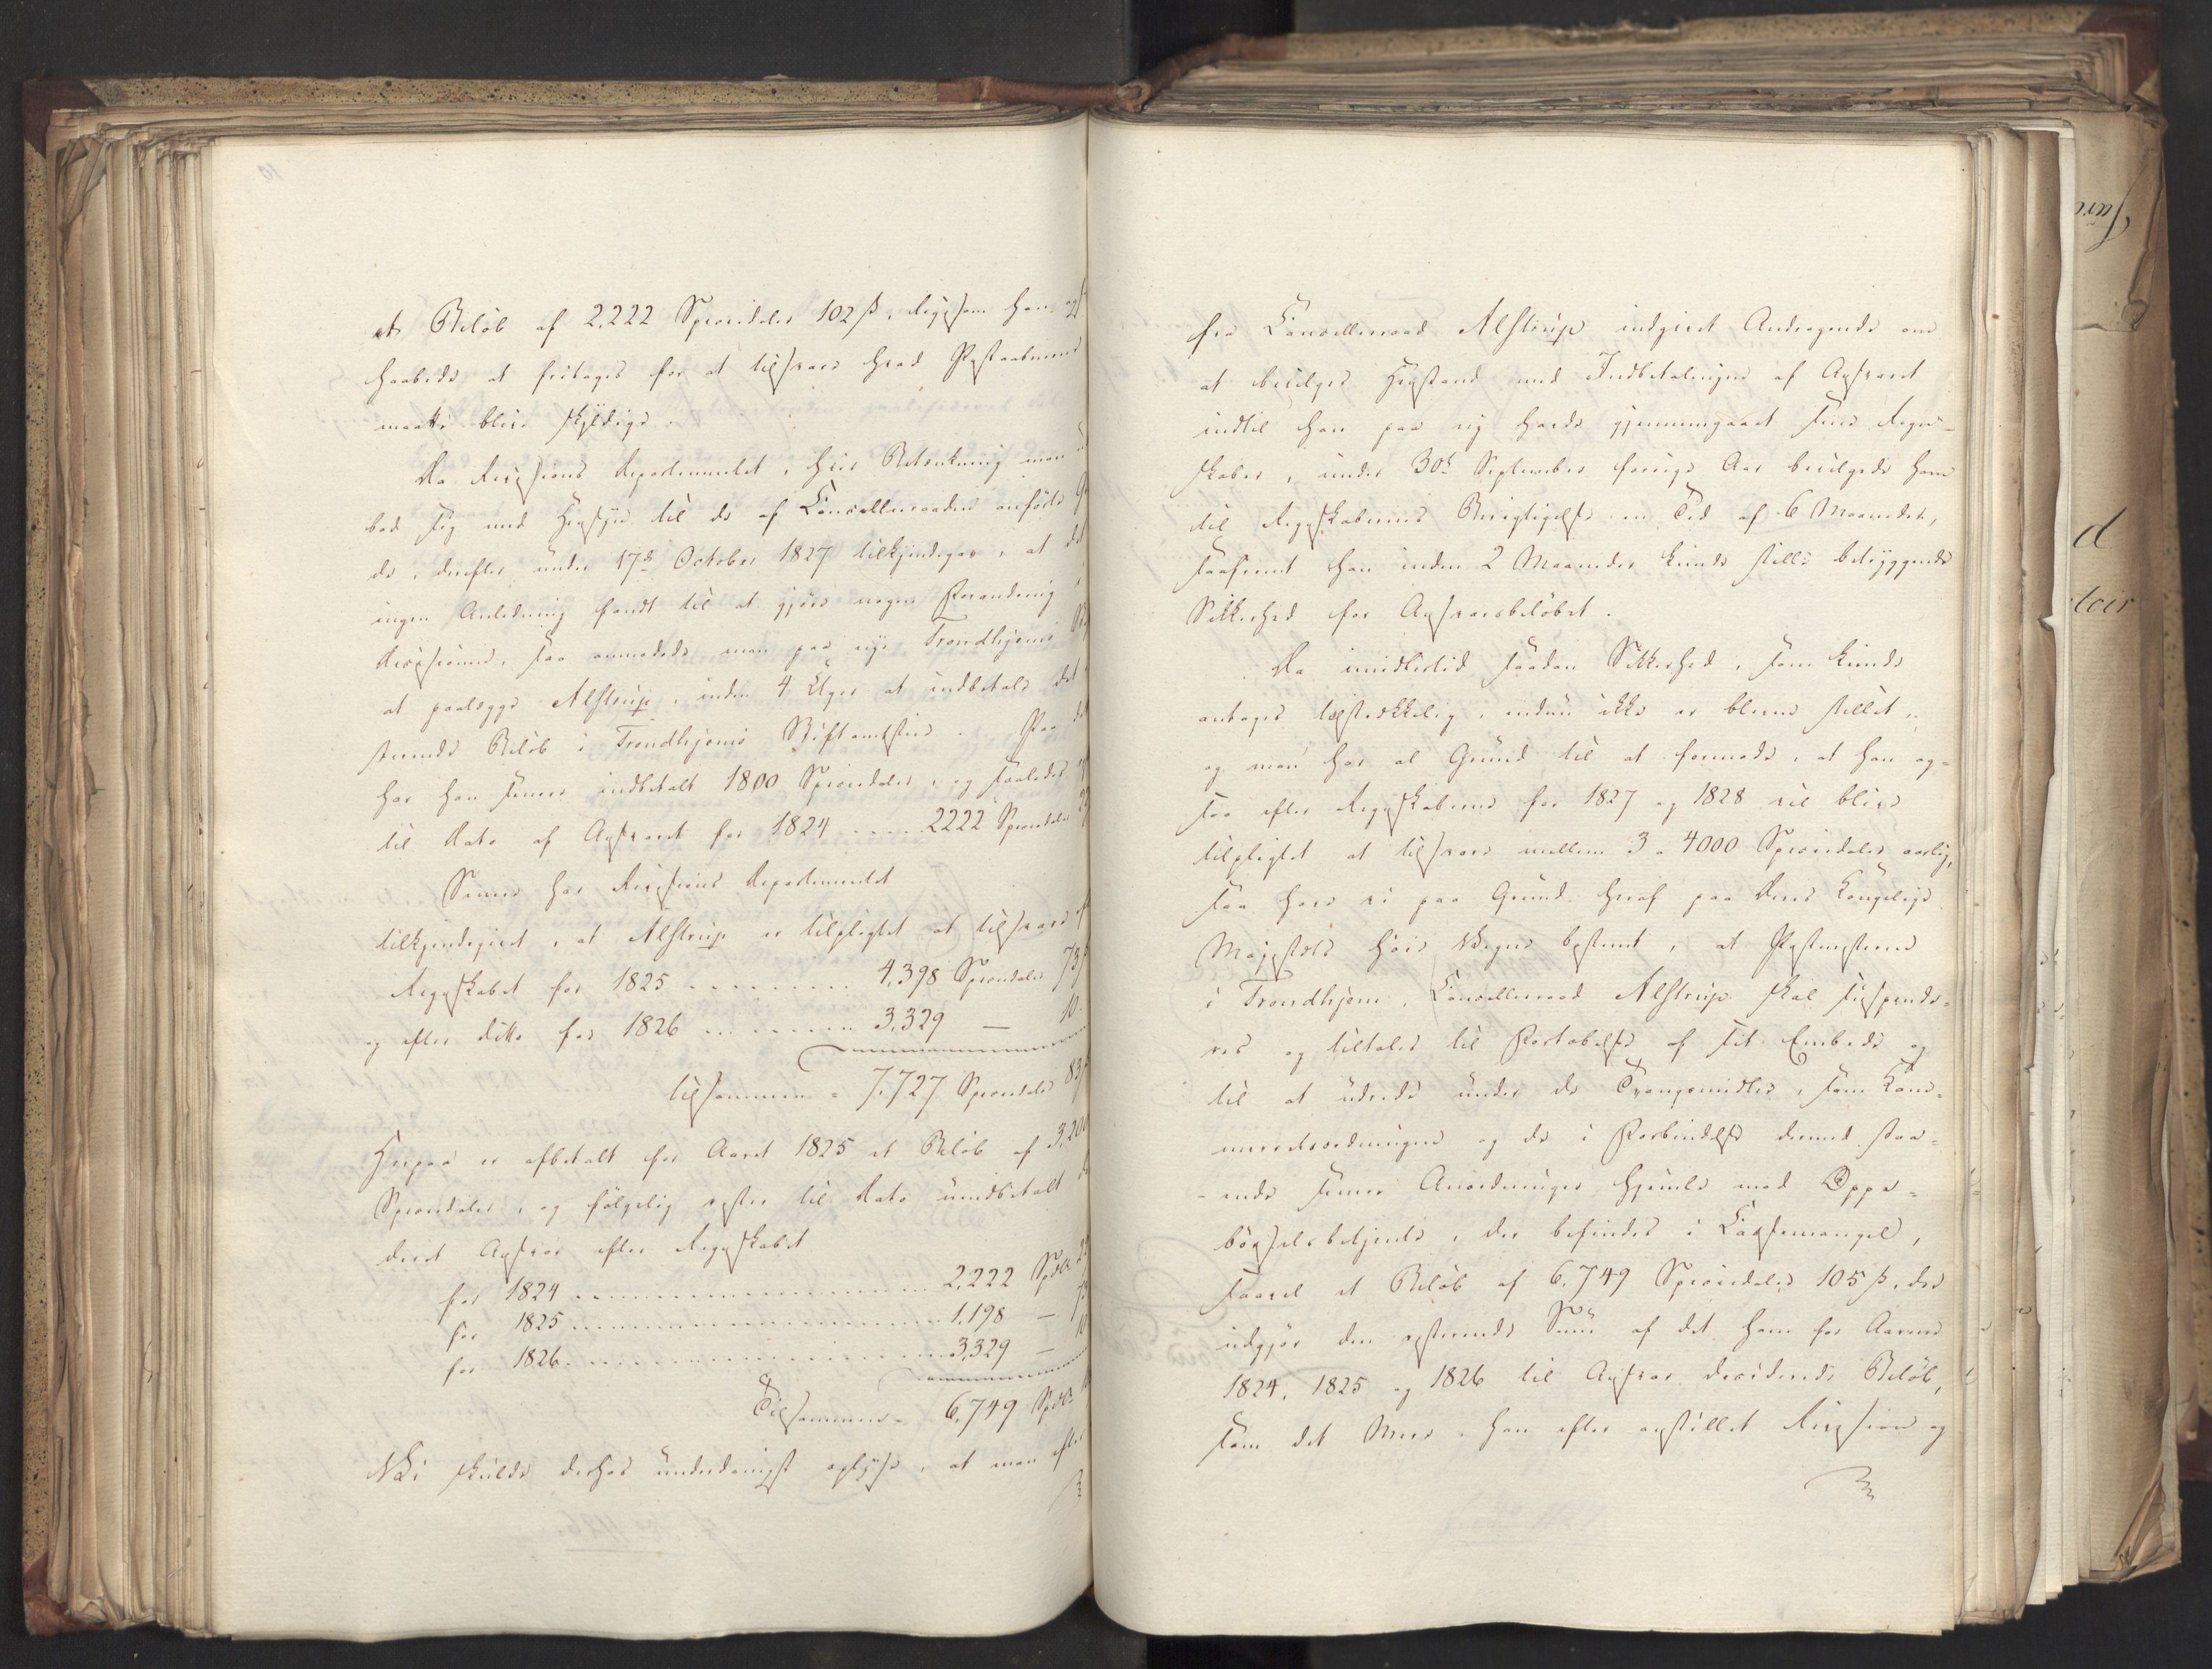 et Beløb af 2.222 Speciedaler 102 ß, ligesom han
haabede at fritages for at tilsvare hvad Postaabnerne
maatte blive skyldige.
Da Revisions Departementet, hvis Betænkning man
bad sig med Hensyn til de af Cancelliraaden anførte
de, derefter under 17de October 1827 tilkjendegav, at det
ingen Anledning fandt til at gjøre nogen Forandring i
Decisionerne, saa anmodede man paa nye Trondhjems
at paalægge Alstrup, inden 4 Uger at indbetale det
sterende Beløb i Trondhjems Stiftamtstue. Paa
har han senere indbetalt 1800 Speciedaler, og saaledes
til Rato af Ansvaret for 1824 ..... 2222 Speciedaler
Senere har Revisions Departementet
tilkjendegivet, at Alstrup er tilpligtet at tilsvare
Regnskabet for 1825 ......... 4,398 Speciedaler 73
og efter ditto for 1826 ......... 3,329 — 10.
tilsammen = 7,727 Speciedaler 83
Herpaa er afbetalt for Aaret 1825 et Beløb af 3,200
Speciedaler, og følgelig rester til Rato uindbetalt
deret Ansvar efter Regnskabet
for 1824 .................... 2,222 Spdlr
for 1825 .................... 1.198 —
for 1826 .................... 3,329 —
Tilsammen = 6,749 Spdlr
Vi skulde derhos underdanigst oplyse, at man efter
fra Cancelliraad Alstrup indgivet Andragende om
at bevilges Henstand med Indbetalingen af Ansvaret
indtil han paa ny havde gjennemgaaet sine Regn-
skaber, under 30te September forrige Aar bevilgede ham
til Regnskabernes Berigtigelse en Tid af 6 Maaneder,
saafremt han inden 2 Maaneder kunde stille betryggende
Sikkerhed for Ansvarsbeløbet.
Da imidlertid saadan Sikkerhed, som kunde
antages tilstrækkelig, endnu ikke er bleven stillet,
og man har al Grund til at formode, at han og-
saa efter Regnskaberne for 1827 og 1828 vil blive
tilpligtet at tilsvare mellem 3 a 4000 Speciedaler aarlig,
saa have vi paa Grund heraf paa Deres Kongelige
Majestæts høie Vegne bestemt, at Postmesteren
i Trondhjem, Cancelliraad Alstrup skal suspende-
res og tiltales til Fortabelse af sit Embede og
til at udrede under de Tvangsmidler, som Kam-
merretsordningen og de i Forbindelse dermed staa-
-ende senere Anordninger hjemle mod Oppe-
børselsbetjente, der befindes i Cassemangel,
saavel et Beløb af 6,749 Speciedaler 105 ß, der
udgjør den resterende Sum af det ham for Aarene
1824, 1825 og 1826 til Ansvar deciderede Beløb,
som det Mere, han efter anstillet Revision og